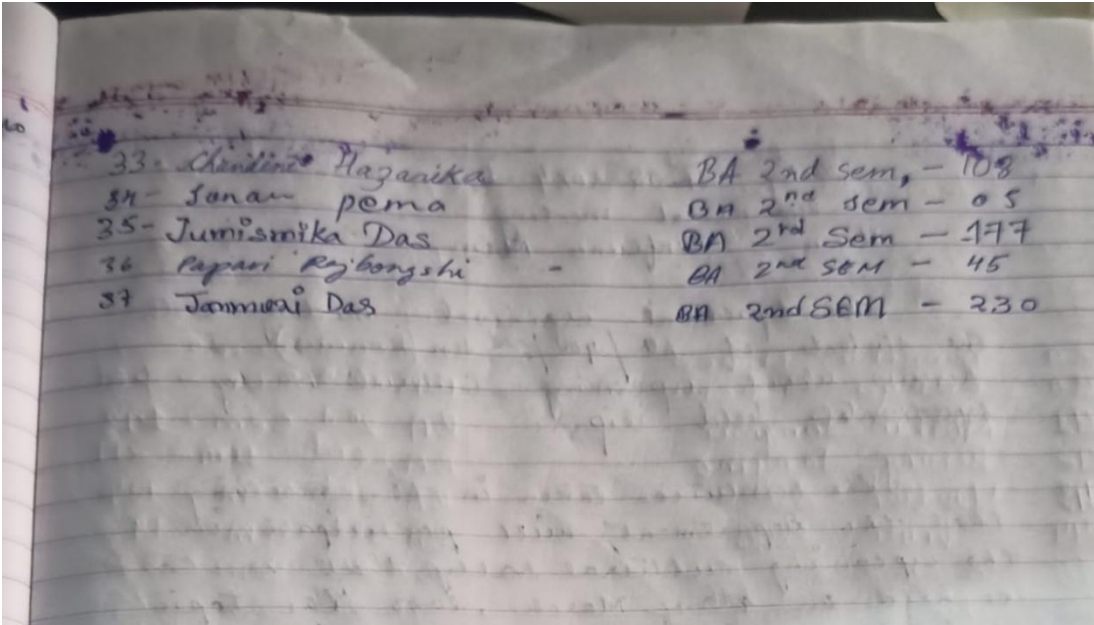 33- Chandini Hazarika BA 2nd sem, - 108
34- Janan pema BA 2nd sem - 05
35- Jumismika Das BA 2rd Sem - 177
36 Papari Rajbongshi - BA 2nd SEM - 45
37 Das BA 2nd SEM - 230